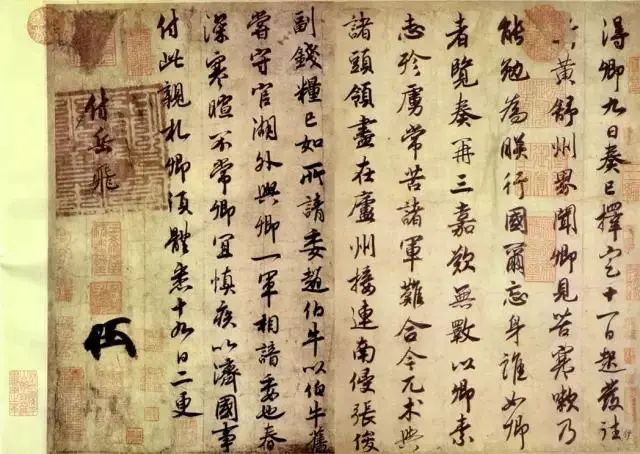 得卿九日奏已擇定十一日起發往
黄舒州界聞卿見苦寒嗽乃
能勉為朕行國爾忘身誰如卿
者覽奏再三嘉歎無斁以卿素
志殄虜常苦諸軍難合今兀朮與
諸頭領盡在廬州接連南侵張俊
副錢糧已如所請委趙伯牛以伯牛舊
嘗守官湖外與卿一軍相諳委也春
深寒暄不常卿宜慎疾以濟國事
付此親札卿須體悉十九日二更
付岳飛